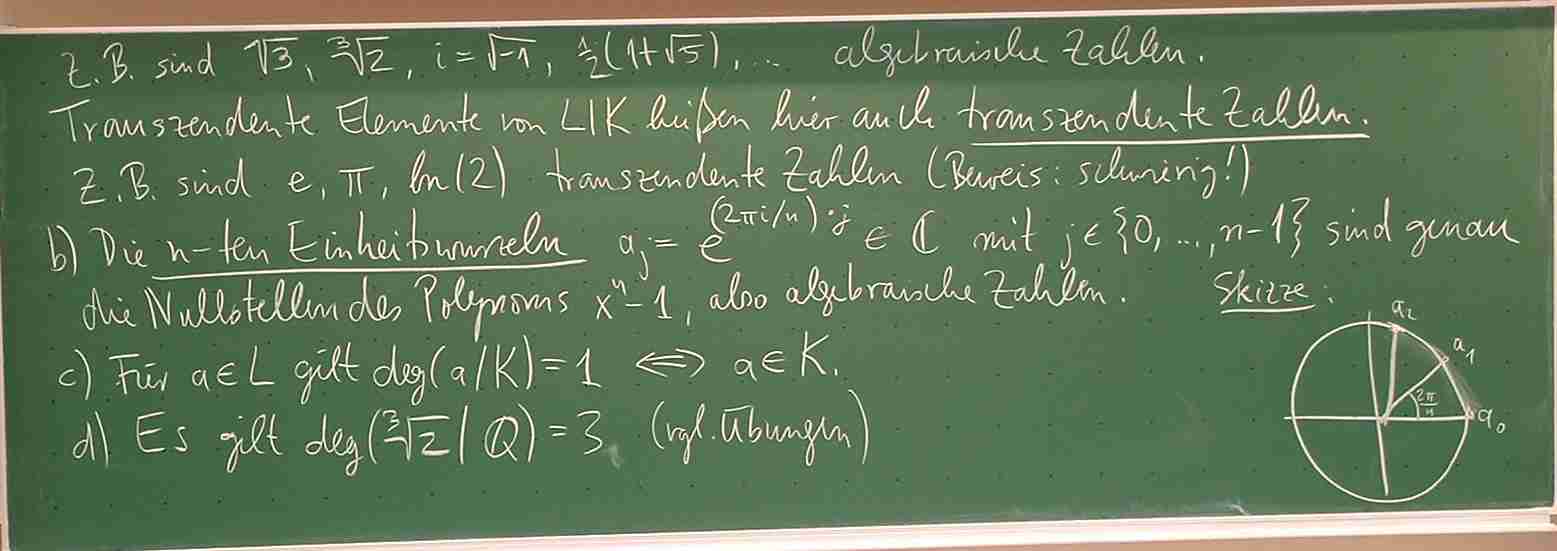 Z.B. sind √3, ∛2, i=√-1, ½(1+√5), ... algebraische Zahlen.
Transzendente Elemente von L|K heißen hier auch transzendente Zahlen.
Z.B. sind e, π, ln(2) transzendente Zahlen (Beweis: schwierig!)
b) Die n-ten Einheitswurzeln a_j = e^((2πi/n)·j) ∈ ℂ mit j∈{0,...,n-1} sind genau
die Nullstellen des Polynoms xⁿ-1, also algebraische Zahlen. Skizze:
c) Für a∈L gilt deg(a/K)=1 ⟺ a∈K.
d) Es gilt deg(∛2|ℚ)=3 (vgl. Übungen)
a₂
a₁
2π/n
a₀